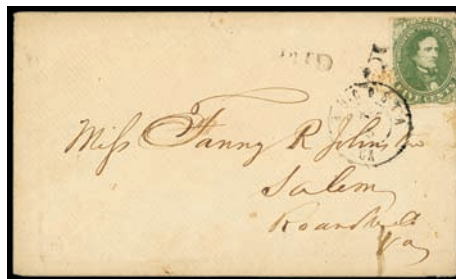 PAID
FIVE CENTS
AUGUSTA
GA
Miss Fanny R Johnston
Salem
Roanoke Co
Va